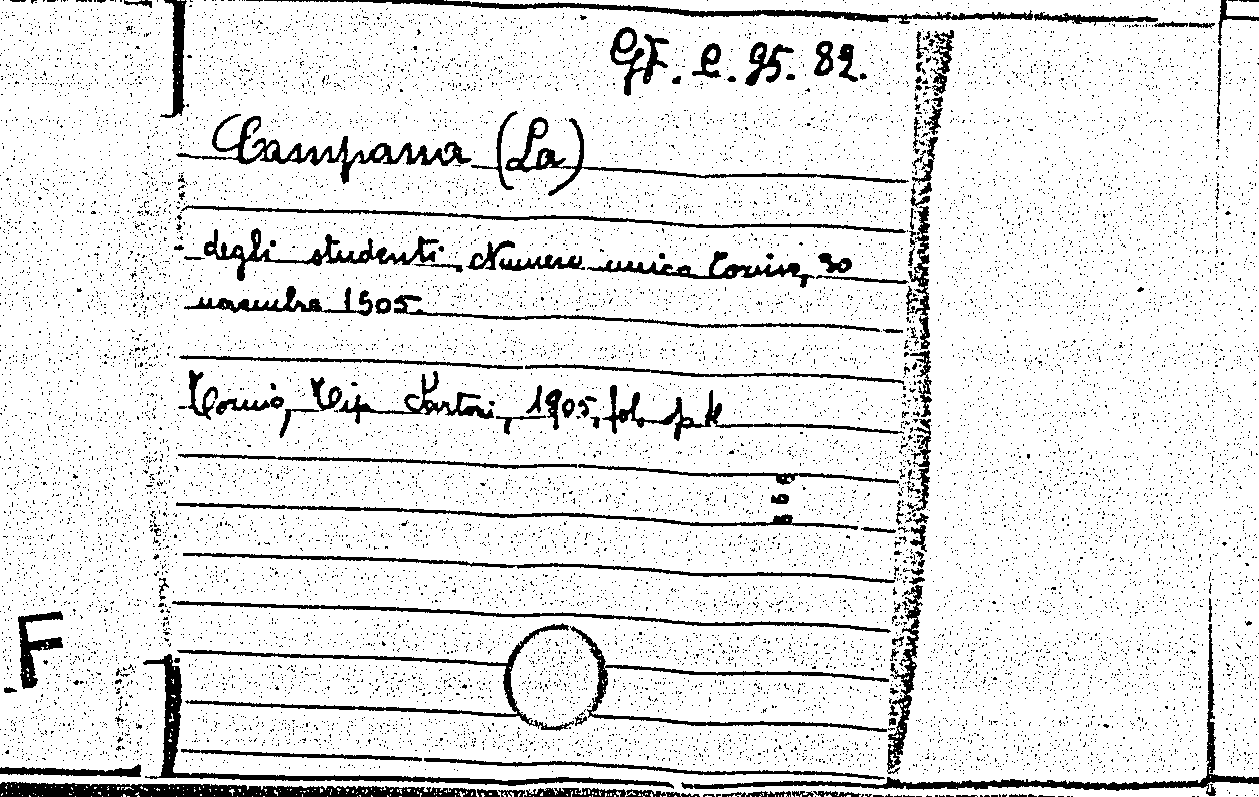 GF. C. 95. 82.
Campana (La)
degli studenti, Numero unico Torino, 30
novembre 1905.
Torino, Tip Sartori, 1905, fol.
F